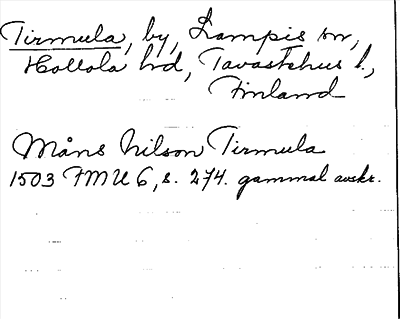 Tirmula, by, Lampis sn,
Hollola hd, Tavastehus l.,
Finland
Måns Nilson Tirmula
1503 FMU 6, s. 274. gammal avskr.